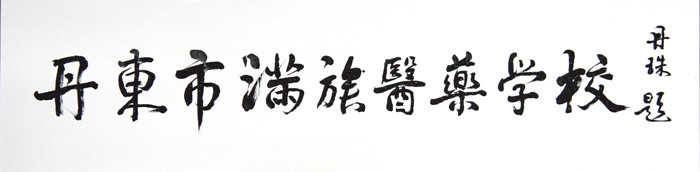 丹東市满族醫藥学校
丹珠题